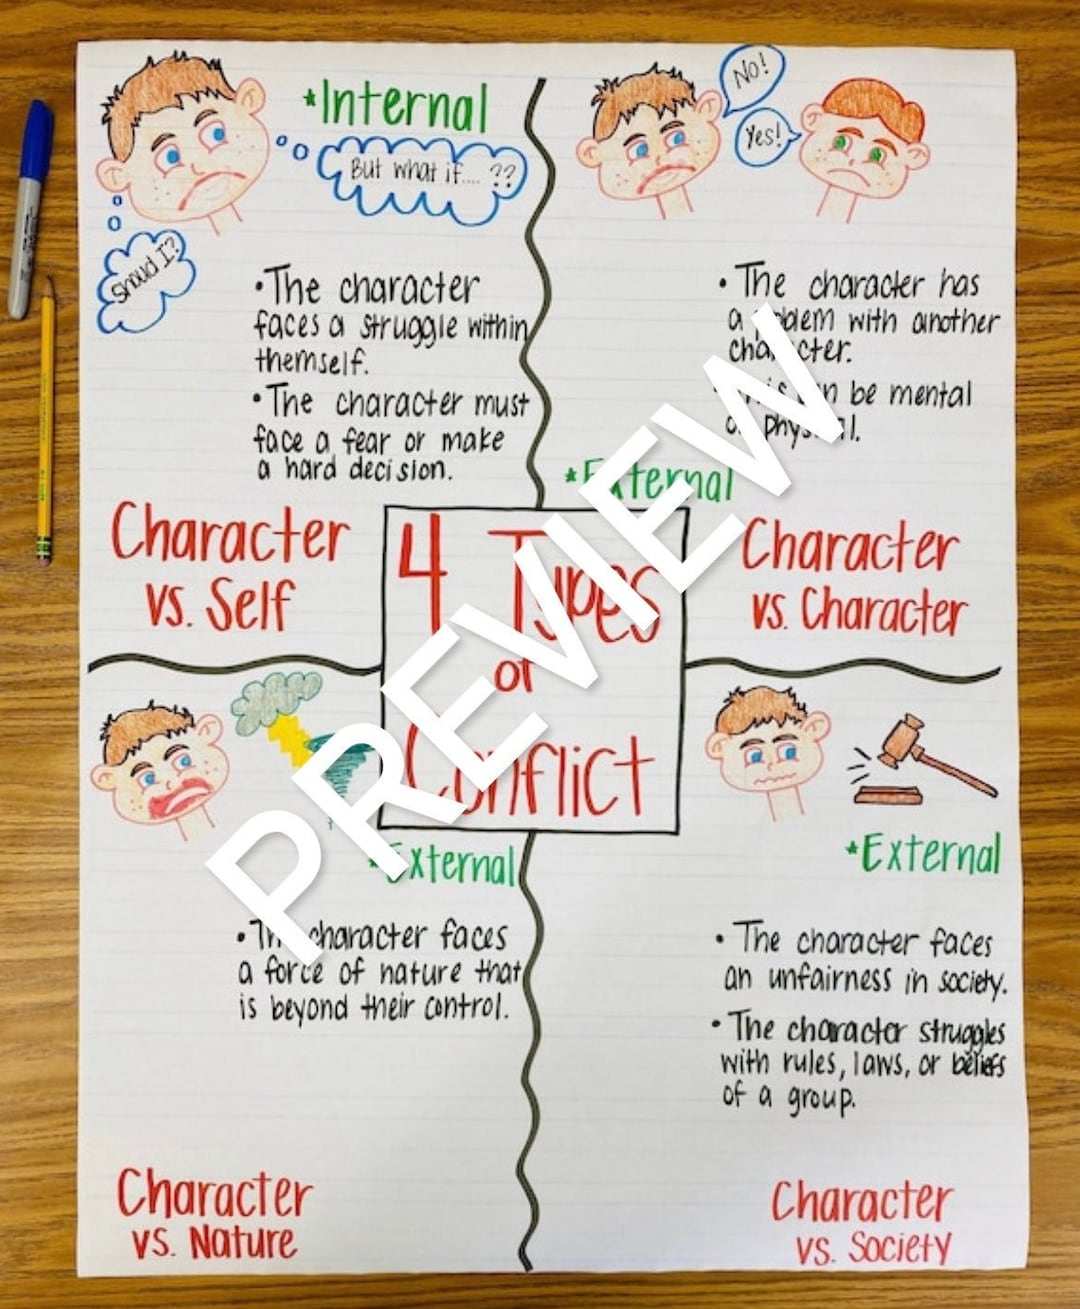 *Internal
But what if.... ??
Shoud I?
•The character
faces a struggle within
themself.
•The character must
face a fear or make
a hard decision.
Character
vs. Self
No!
Yes!
• The character has
a problem with another
character.
• This can be mental
or physical.
*External
Character
vs. Character
4 Types
of
Conflict
PREVIEW
*External
• The character faces
a force of nature that
is beyond their control.
Character
vs. Nature
*External
• The character faces
an unfairness in society.
• The character struggles
with rules, laws, or beliefs
of a group.
Character
vs. Society